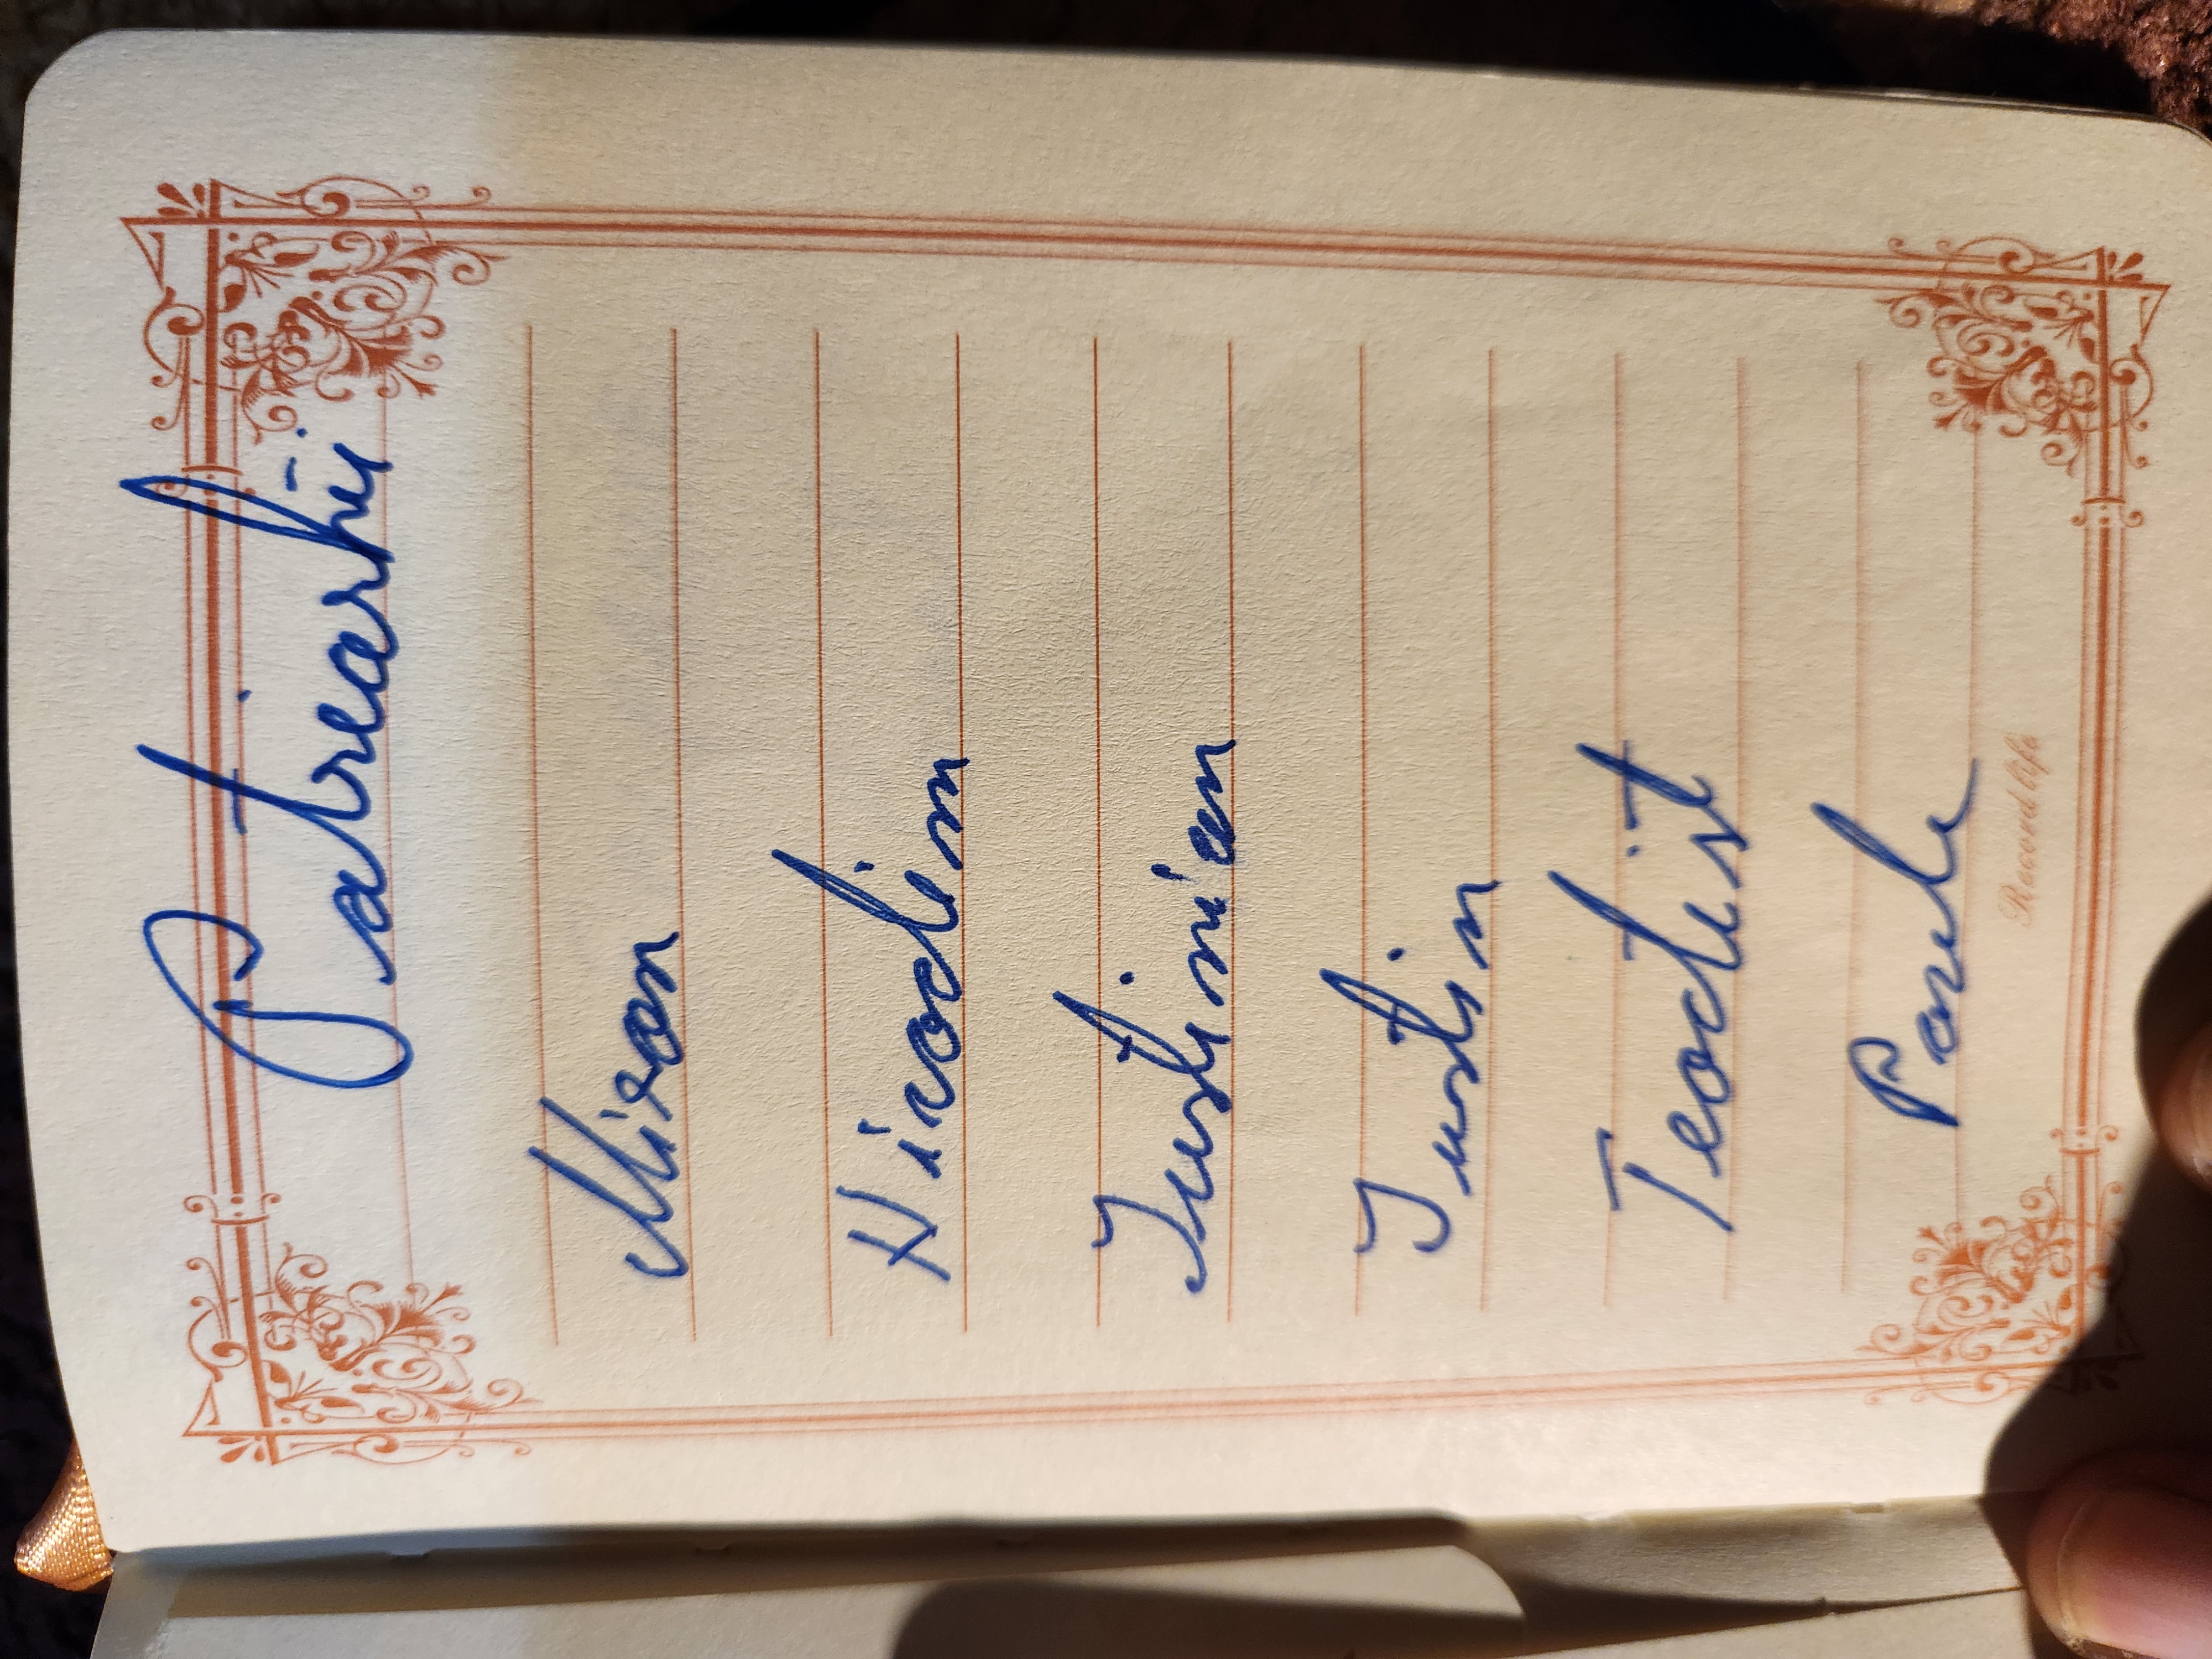 Patriarhii
Miron
Nicodim
Iustinian
Iustin
Teoctist
Record life